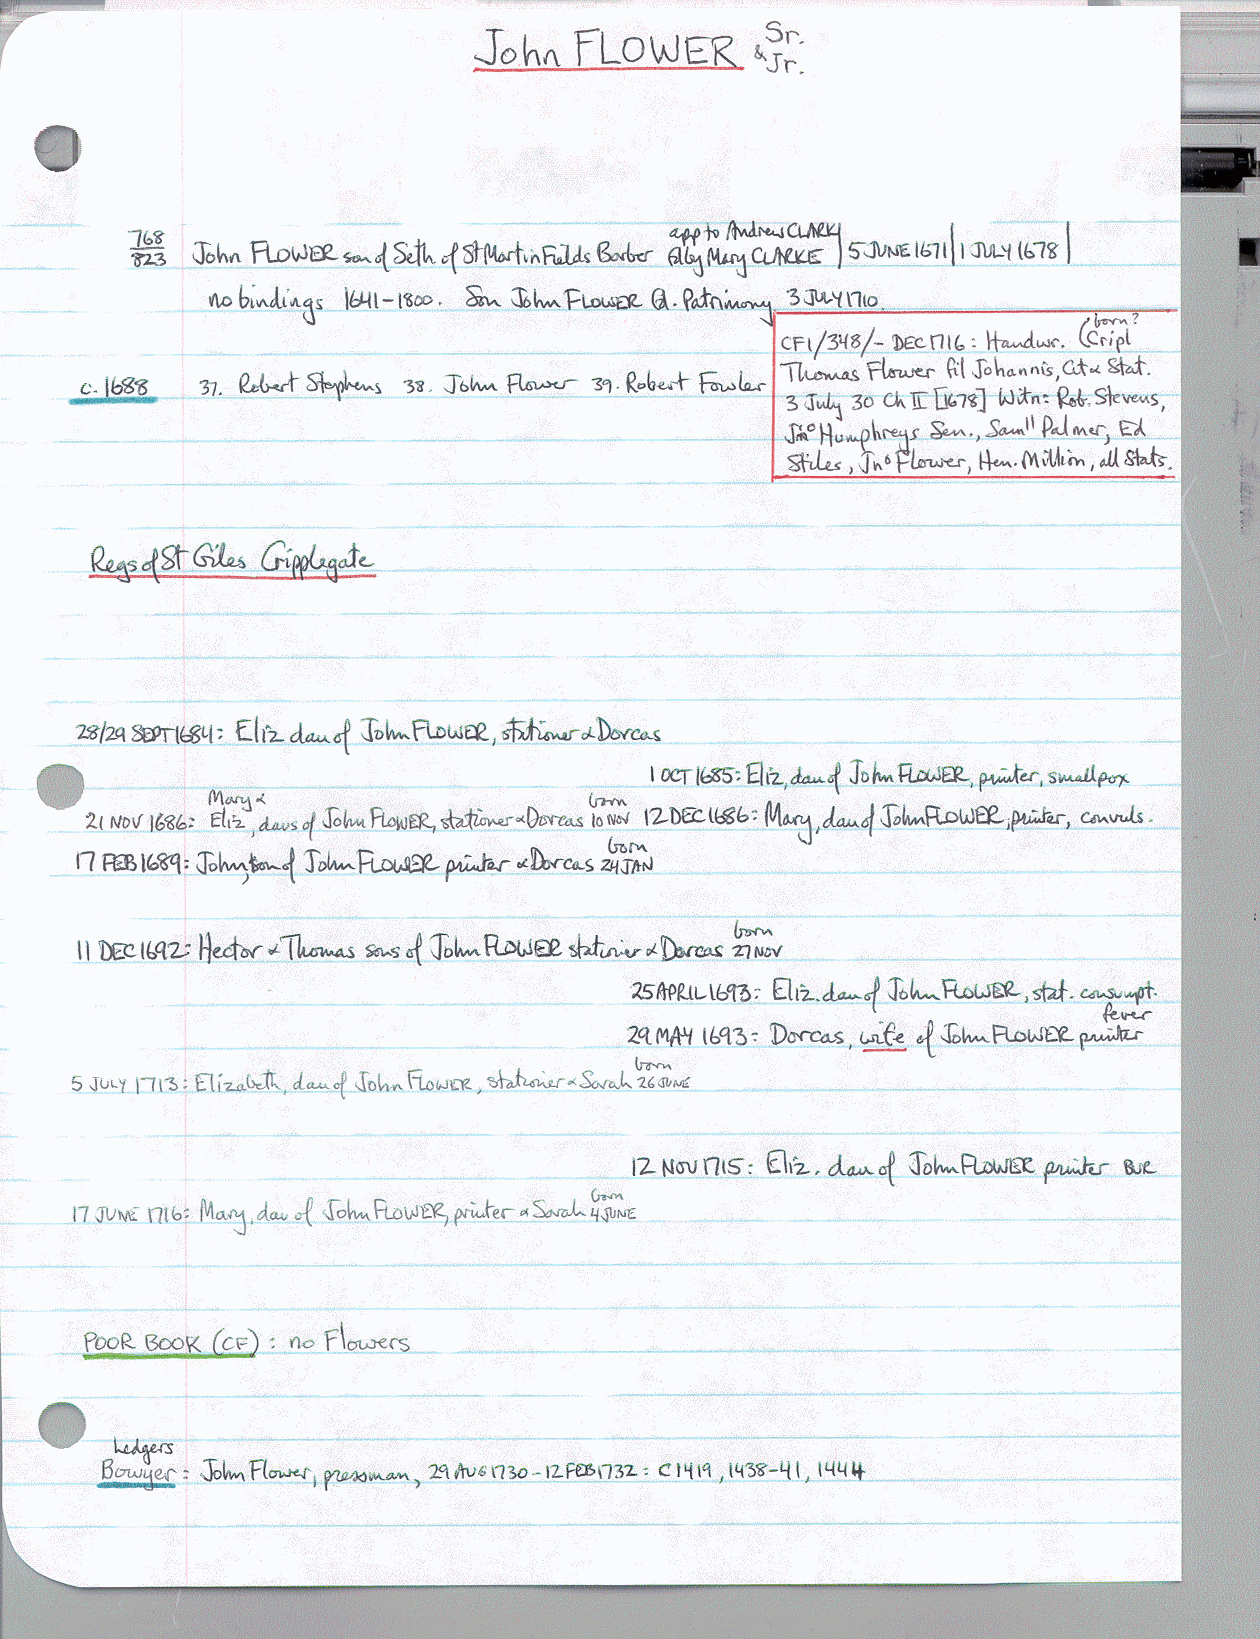 John FLOWER & Sr. Jr.
768
823
John FLOWER son of Seth of St Martin Fields Barber app to Andrew CLARK fd by Mary CLARKE | 5 JUNE 1671 | 1 JULY 1678 |
no bindings 1641-1800. Son John FLOWER fd. Patrimony 3 JULY 1710.
CF1/348/- DEC 1716: Handwr. (born? Cripl
Thomas Flower fil Johannis, Cit & Stat.
3 July 30 Ch II [1678] Witn: Rob. Stevens,
Jno Humphreys Sen., Samll Palmer, Ed
Stiles, Jno Flower, Hen. Million, all Stats.
c. 1688 37. Robert Stephens 38. John Flower 39. Robert Fowler
Regs of St Giles Cripplegate
28/29 SEPT 1684: Eliz dau of John FLOWER, stationer & Dorcas
1 OCT 1685: Eliz, dau of John FLOWER, printer, smallpox
21 NOV 1686: Mary & Eliz, daus of John FLOWER, stationer & Dorcas born 10 NOV
12 DEC 1686: Mary, dau of John FLOWER, printer, convuls.
17 FEB 1689: John, son of John FLOWER printer & Dorcas born 24 JAN
11 DEC 1692: Hector & Thomas sons of John FLOWER stationer & Dorcas born 27 NOV
25 APRIL 1693: Eliz. dau of John FLOWER, stat. consumpt.
29 MAY 1693: Dorcas, wife of John FLOWER printer fever
5 JULY 1713: Elizabeth, dau of John FLOWER, stationer & Sarah born 26 JUNE
12 NOV 1715: Eliz. dau of John FLOWER printer BUR
17 JUNE 1716: Mary, dau of John FLOWER, printer & Sarah born 4 JUNE
POOR BOOK (CF): no Flowers
Ledgers
Bowyer: John Flower, pressman, 29 AUG 1730 - 12 FEB 1732: C1419, 1438-41, 1444